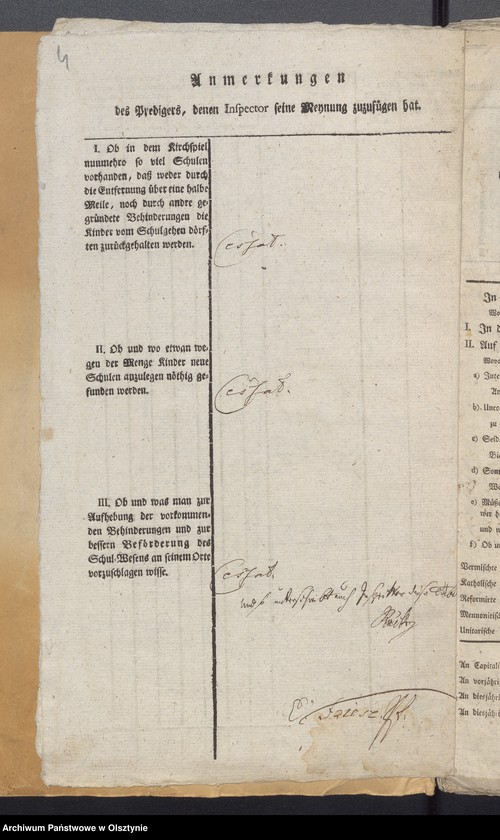 4
Anmerkungen
des Predigers, denen Inspector seine Meynung zuzufügen hat.
I. Ob in dem Kirchspiel
nunmehro so viel Schulen
vorhanden, daß weder durch
die Entfernung über eine halbe
Meile, noch durch andre ge-
gründete Behinderungen die
Kinder vom Schulgehen dörf-
ten zurückgehalten werden.
Cessat.
II. Ob und wo etwan we-
gen der Menge Kinder neue
Schulen anzulegen nöthig ge-
funden werden.
Cessat.
III. Ob und was man zur
Aufhebung der vorkommen-
den Behinderungen und zur
bessern Beförderung des
Schul-Wesens an seinem Orte
vorzuschlagen wisse.
Cessat.
In
I. In d
II. Auf
a) Inte
b) Unco
zu
c) Seid
d) Som
e) Müße
und w
f) Ob u
Vermischte
Katholische
Reformirte
Mennonitisch
Unitarische
An Capitali
An vorjähri
An diesjähr
An diesjähr
Archiwum Państwowe w Olsztynie